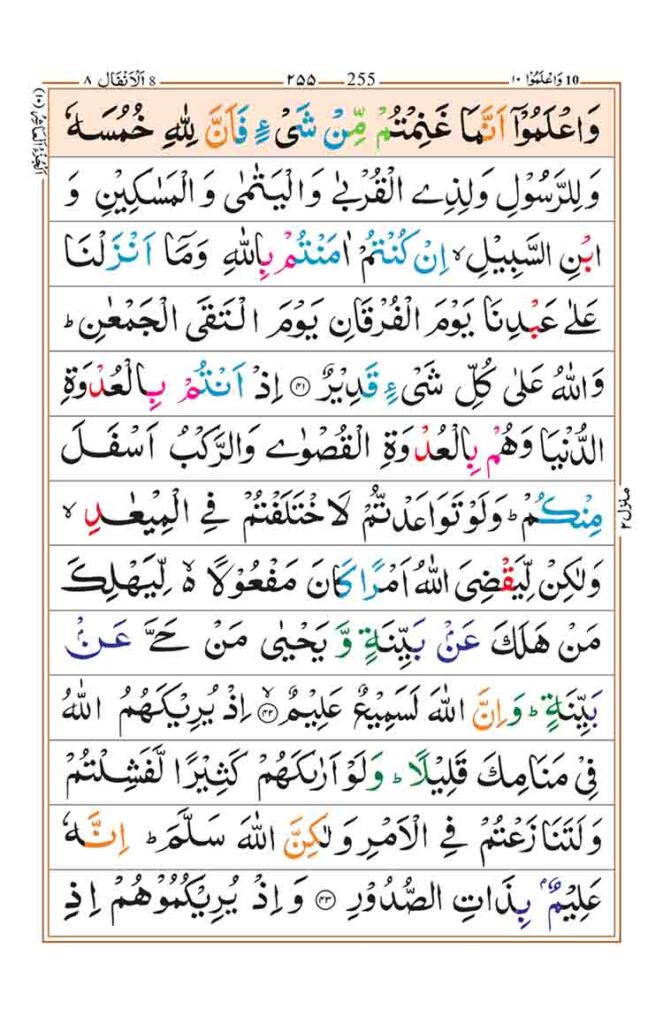 وَاعْلَمُوْۤا ١٠ 10 255 ٢٥٥ اَلْاَنْفَال ٨ 8
اَلْجُزْءُ الْعَاشِرُ (١٠)
وَاعْلَمُوْۤا اَنَّمَا غَنِمْتُمْ مِّنْ شَیْءٍ فَاَنَّ لِلّٰهِ خُمُسَهٗ
وَلِلرَّسُوْلِ وَلِذِی الْقُرْبٰی وَالْیَتٰمٰی وَالْمَسٰكِیْنِ وَ
ابْنِ السَّبِیْلِ ۙ اِنْ كُنْتُمْ اٰمَنْتُمْ بِاللّٰهِ وَمَاۤ اَنْزَلْنَا
عَلٰی عَبْدِنَا یَوْمَ الْفُرْقَانِ یَوْمَ الْتَقَی الْجَمْعٰنِ ؕ
وَاللّٰهُ عَلٰی كُلِّ شَیْءٍ قَدِیْرٌ ﴿۴۱﴾ اِذْ اَنْتُمْ بِالْعُدْوَةِ
الدُّنْیَا وَهُمْ بِالْعُدْوَةِ الْقُصْوٰی وَالرَّكْبُ اَسْفَلَ
مِنْكُمْ ؕ وَلَوْ تَوَاعَدْتُّمْ لَاخْتَلَفْتُمْ فِی الْمِیْعٰدِ ۙ
وَلٰكِنْ لِّیَقْضِیَ اللّٰهُ اَمْرًا كَانَ مَفْعُوْلًا ۙ۬ لِّیَهْلِكَ
مَنْ هَلَكَ عَنْۢ بَیِّنَةٍ وَّ یَحْیٰی مَنْ حَیَّ عَنْۢ
بَیِّنَةٍ ؕ وَاِنَّ اللّٰهَ لَسَمِیْعٌ عَلِیْمٌ ﴿۴۲﴾ۙ اِذْ یُرِیْكَهُمُ اللّٰهُ
فِیْ مَنَامِكَ قَلِیْلًا ؕ وَلَوْ اَرٰىكَهُمْ كَثِیْرًا لَّفَشِلْتُمْ
وَلَتَنَازَعْتُمْ فِی الْاَمْرِ وَلٰكِنَّ اللّٰهَ سَلَّمَ ؕ اِنَّهٗ
عَلِیْمٌۢ بِذَاتِ الصُّدُوْرِ ﴿۴۳﴾ وَاِذْ یُرِیْكُمُوْهُمْ اِذِ
منزل ٢